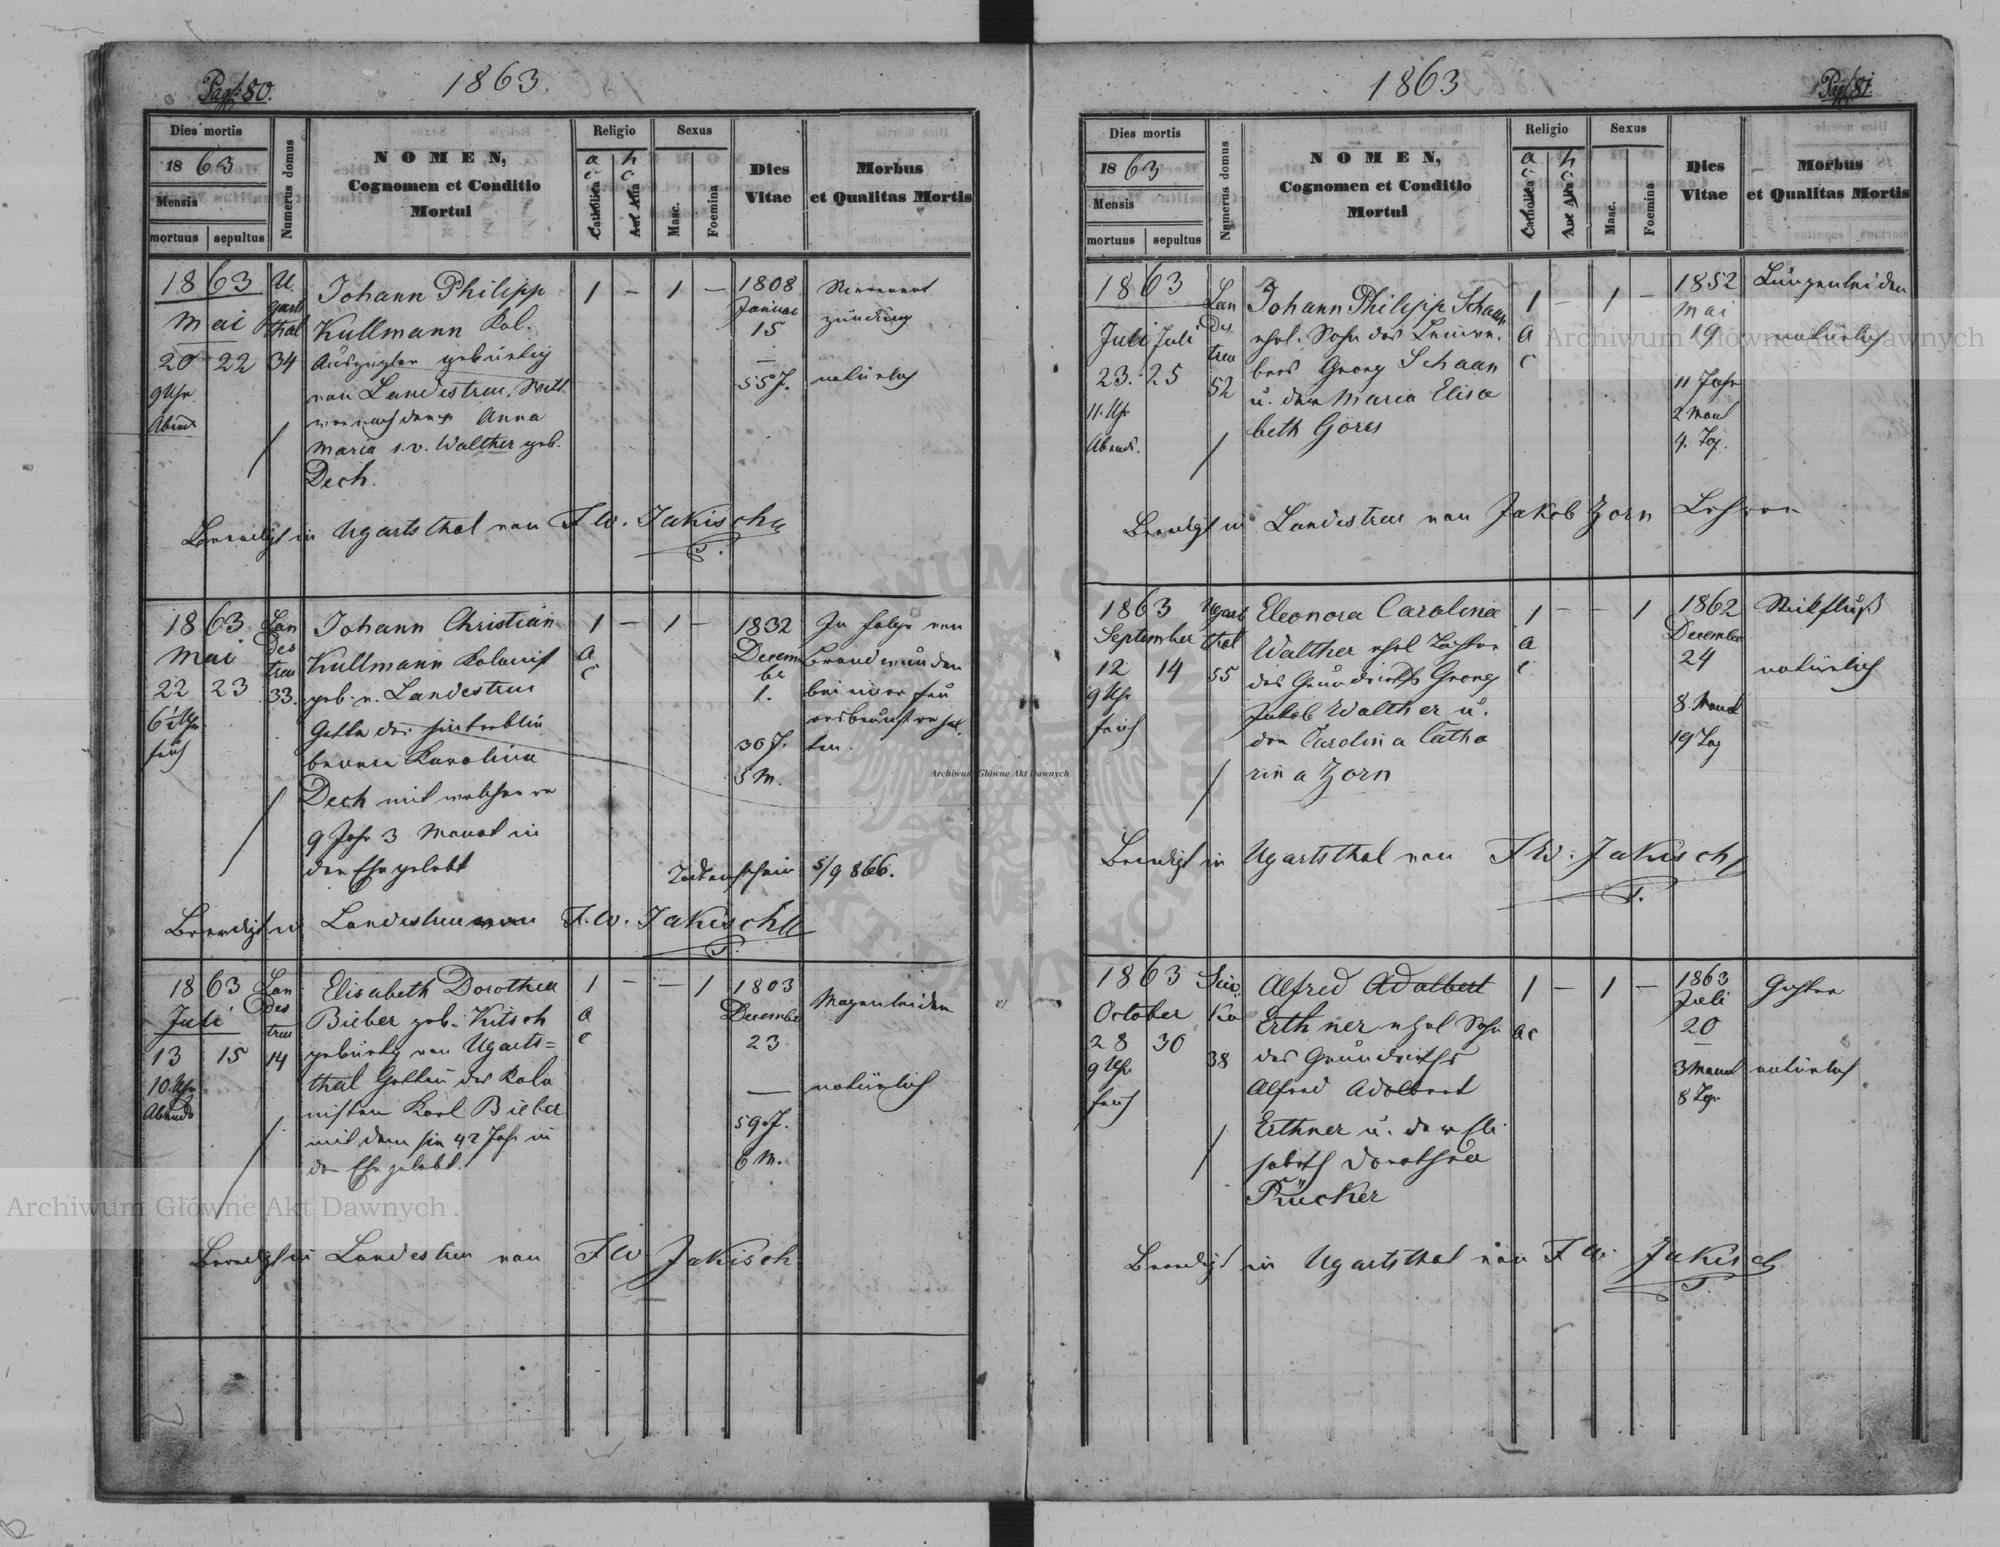 Pag: 80.
1863.
Dies mortis
1863
Mensis
mortuus sepultus
Numerus domus
NOMEN,
Cognomen et Conditio
Mortui
Religio
a c
h c
Catholica
Aut Alia
Sexus
Masc.
Foemina
Dies
Vitae
Morbus
et Qualitas Mortis
1863
Mai
20 22
9 Uhr
Abends
U.
gart
thal
34
Johann Philipp
Kullmann Kol.
Auszügler gebürtig
von Landestreu, Witt
wer nach der Anna
Maria s.v. Walther geb.
Dech.
1 – 1 –
1808
Januar
15
–
55 J.
natürlich
Beerdigt in Ugartsthal von F. W. Jakisch
1863.
Mai
22 23
6 1/2 Uhr
früh
Lan
des
treu
33.
Johann Christian
Kullmann Kolonist
geb. v. Landestreu
Gatte der hinterblie
benen Karolina
Dech mit welcher er
9 Jahr 3 Monat in
der Ehe gelebt
1 – 1 –
a
c
1832
Decem
ber
1.
30 J.
5 M.
In folge von
Brandwunden
bei einer Feu
ersbrunst erhal
ten.
Todtenschein 5/9 866.
Beerdigt in Landestreu von F. W. Jakisch
1863
Juli
13 15
10. Uhr
Abends
Lan
des
treu
14
Elisabeth Dorothea
Bieber geb. Kitsch
gebürtig von Ugarts=
thal Gattin des Kolo
nisten Karl Bieber
mit dem sie 42 Jahr in
der Ehe gelebt.
1 – – 1
a
c
1803
December
23
—
59 J.
6 M.
Magenleiden
natürlich
Beerdigt in Landestreu von F W Jakisch
1863
Pag: 81.
Dies mortis
1863
Mensis
mortuus sepultus
Numerus domus
NOMEN,
Cognomen et Conditio
Mortui
Religio
a c
h c
Catholica
Aut Alia
Sexus
Masc.
Foemina
Dies
Vitae
Morbus
et Qualitas Mortis
1863
Juli Juli
23. 25
11. Uhr
Abends.
Lan
des
treu
52
Johann Philipp Schaan
ehel. Sohn des
Georg Schaan
u. der Maria Elisa
beth Göres
1 – 1 –
a
c
1852
Mai
19
11 Jahr
2 Monat
4. Tag.
Lungenleiden
natürlich
Beerdigt in Landestreu von Jakob Zorn Lehrer
1863
September
12 14
9 Uhr
früh
Ugart
thal
55
Eleonora Carolina
Walther ehel Tochter
des Grundwirths Georg
Jakob Walther u.
der Carolina Catha
rina Zorn
1 – – 1
a
c
1862
December
24
8 Monat
19 Tag
Stickfluß
natürlich
Beerdigt in Ugartsthal von F W. Jakisch
1863
October
28 30
9 Uhr
früh
38
Alfred Adalbert
Erthner ehel Sohn
des Grundwirths
Alfred Adalbert
Erthner u. der Eli
sabeth Dorothea
Rücker
1 – 1 –
ac
1863
Juli
20
3 Monat
8 Tage
natürlich
Beerdigt in Ugartsthal von F W. Jakisch
Archiwum Główne Akt Dawnych
Archiwum Główne Akt Dawnych
Archiwum Główne Akt Dawnych